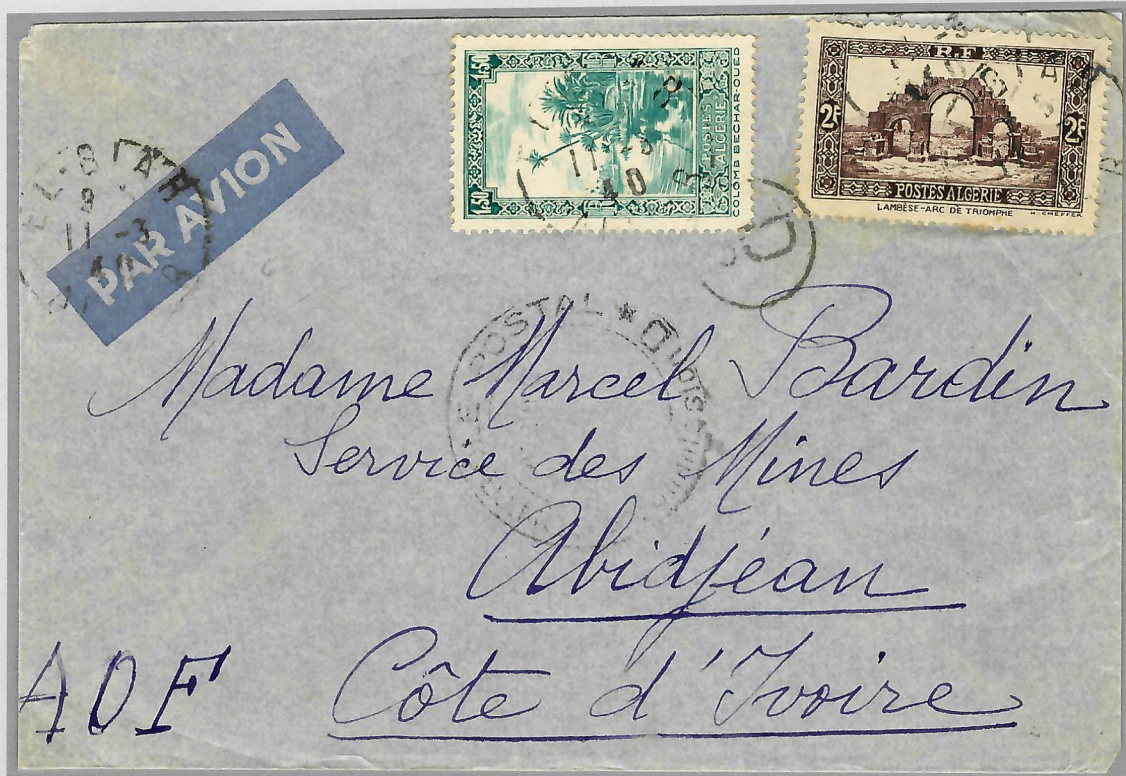 EL-BIAR
11 -3
40
PAR AVION
1f50 1f50
POSTES
ALGERIE
COLOMB BECHAR-OUED
11 -3
40
R.F
2F 2F
POSTES ALGERIE
LAMBÈSE-ARC DE TRIOMPHE H. CHEFFER
POSTAL *
Madame Marcel Bardin
Service des Mines
Abidjéan
AOF Côte d'Ivoire